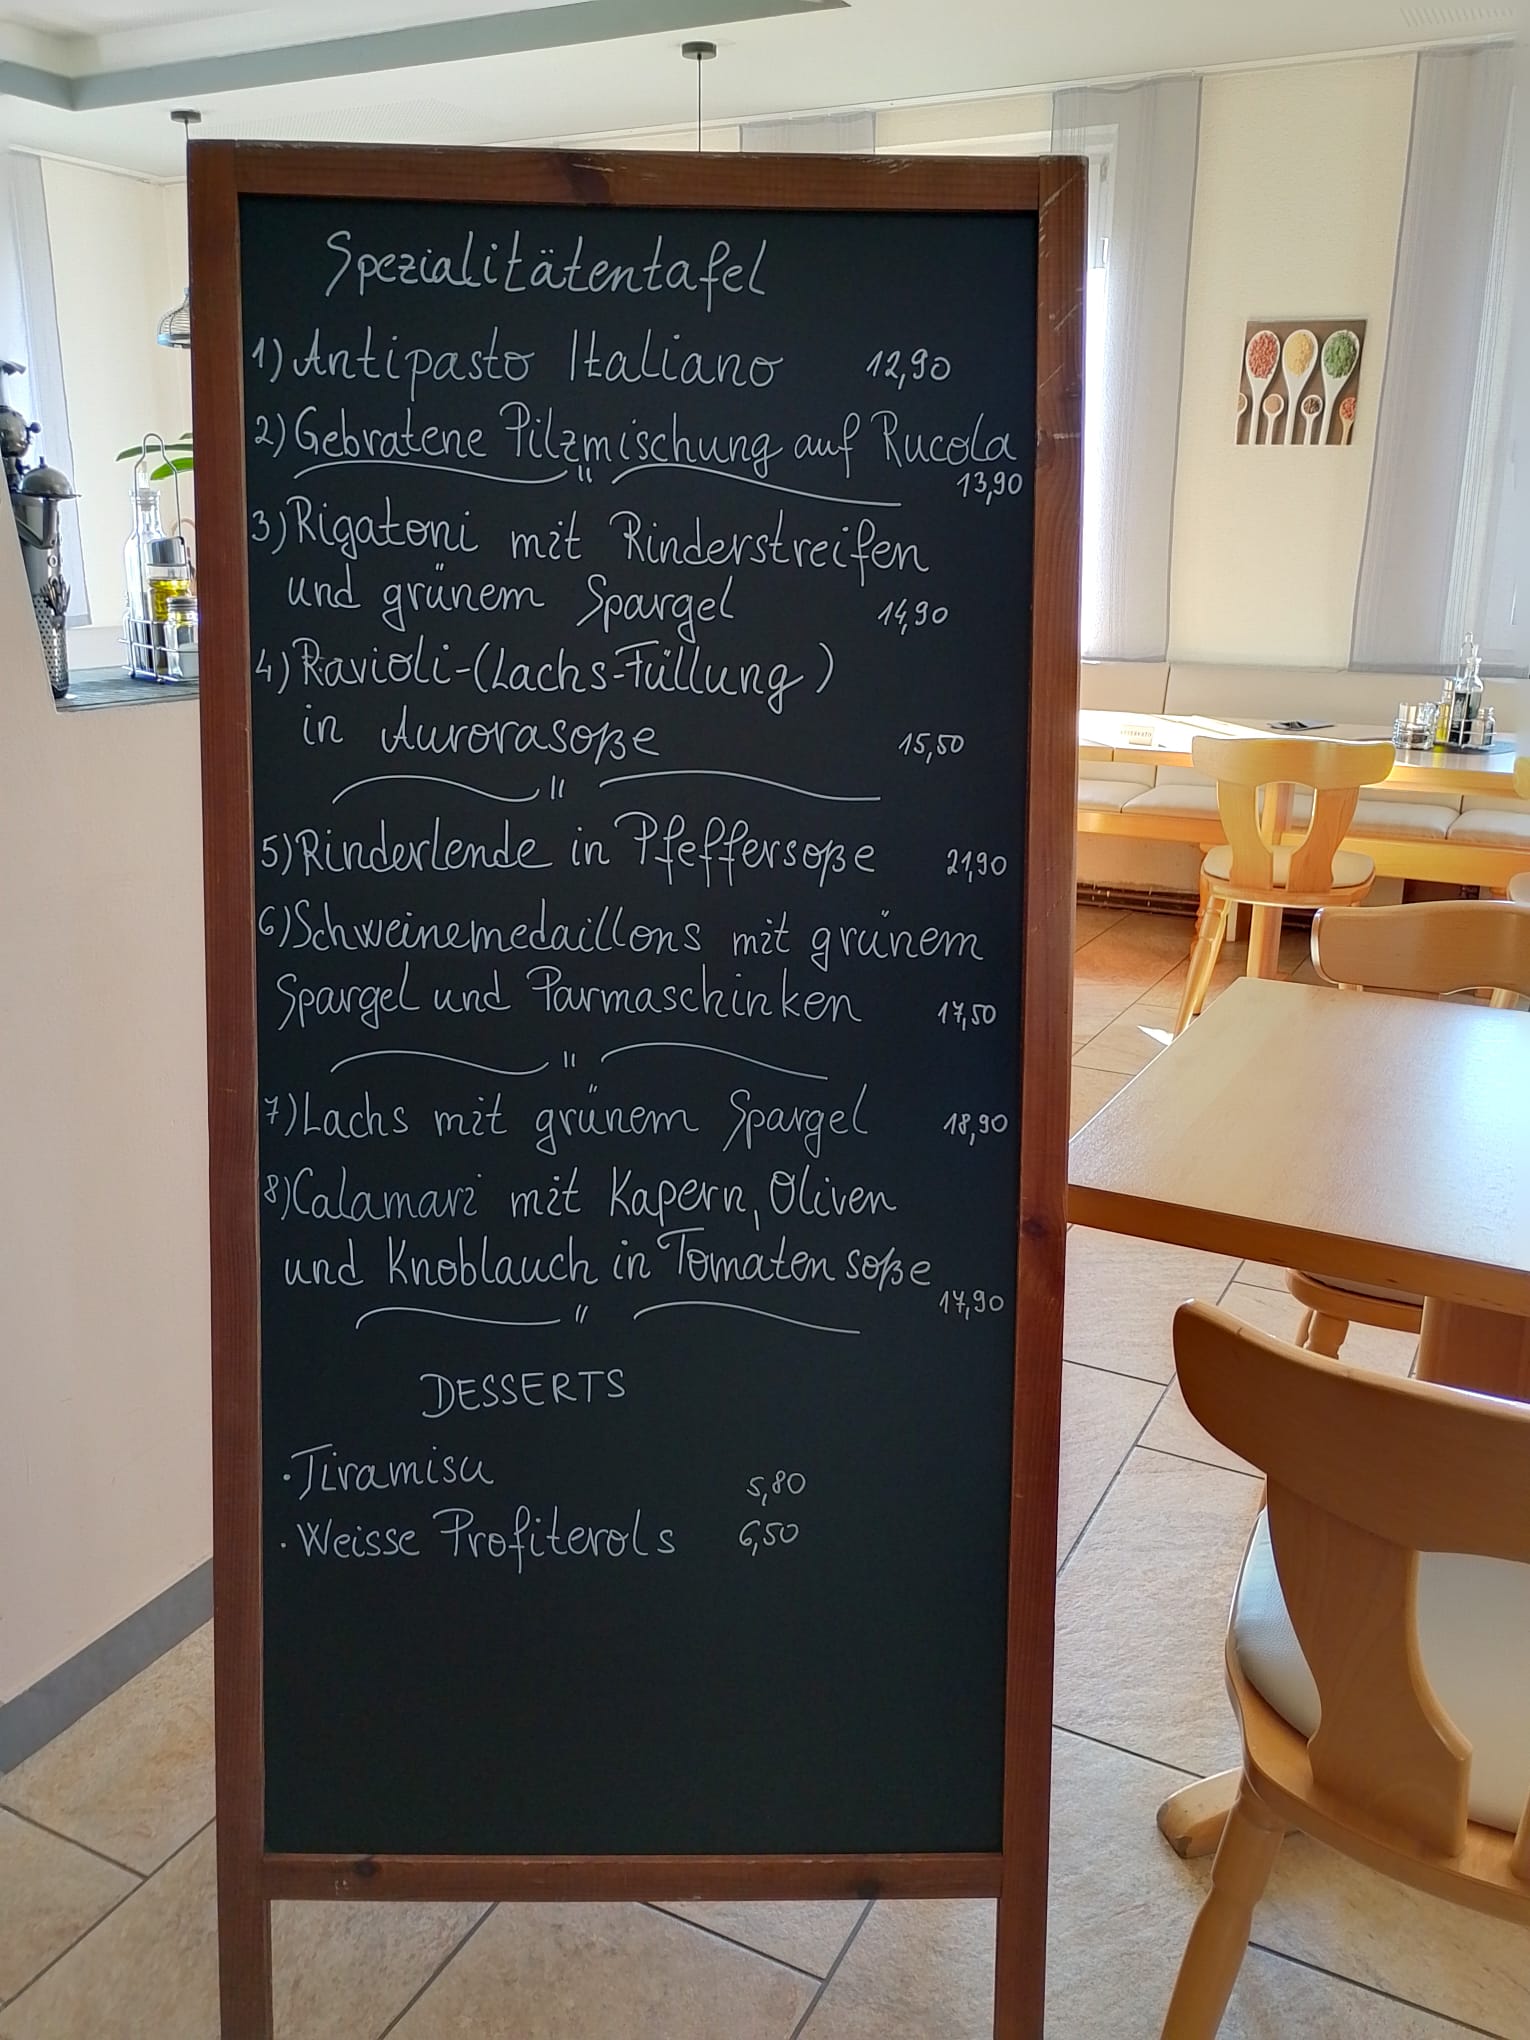 Spezialitätentafel
1) Antipasto Italiano 12,90
2) Gebratene Pilzmischung auf Rucola
13,90
3) Rigatoni mit Rinderstreifen
und grünem Spargel 14,90
4) Ravioli-(Lachs-Füllung)
in Aurorasoße 15,50
5) Rinderlende in Pfeffersoße 21,90
6) Schweinemedaillons mit grünem
Spargel und Parmaschinken 17,50
7) Lachs mit grünem Spargel 18,90
8) Calamari mit Kapern, Oliven
und Knoblauch in Tomatensoße
17,90
DESSERTS
· Tiramisu 5,80
· Weisse Profiterols 6,50